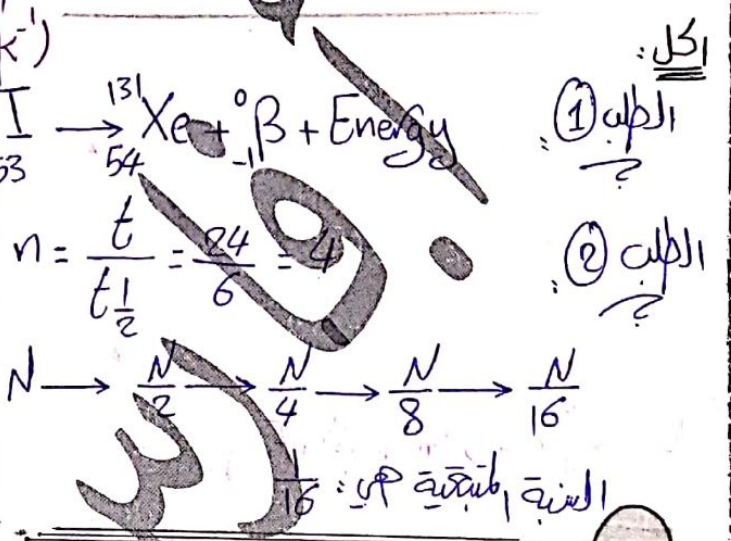 k⁻¹)
الحل:
الطلب ①: ₅₃I → ¹³¹₅₄Xe + ⁰₋₁β + Energy
الطلب ②: n = t / t½ = 24/6 = 4
N → N/2 → N/4 → N/8 → N/16
النسبة المتبقية هي: 1/16